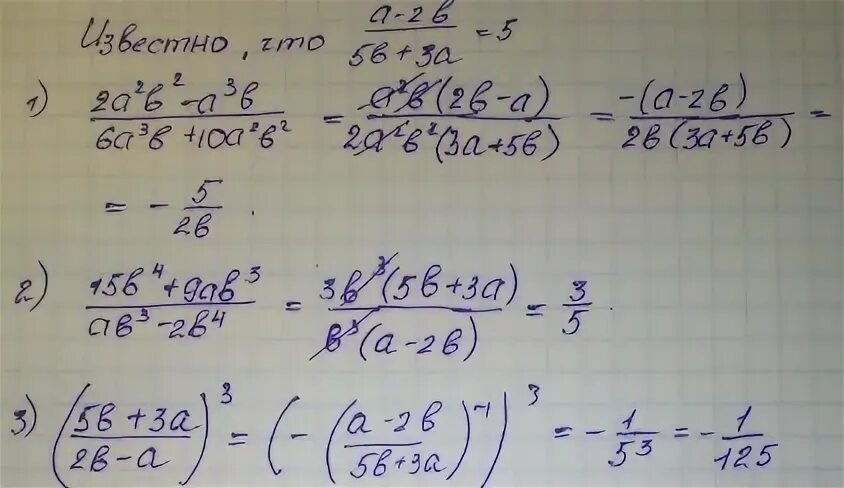 Известно, что (a-2в)/(5в+3a) = 5
1) (2a²в² - a³в)/(6a³в + 10a²в²) = (a²в(2в-a))/(2a²в²(3a+5в)) = (-(a-2в))/(2в(3a+5в)) =
= - 5/(2в).
2) (15в⁴+9aв³)/(aв³-2в⁴) = (3в³(5в+3a))/(в³(a-2в)) = 3/5.
3) ((5в+3a)/(2в-a))³ = (-((a-2в)/(5в+3a))⁻¹)³ = - 1/5³ = - 1/125